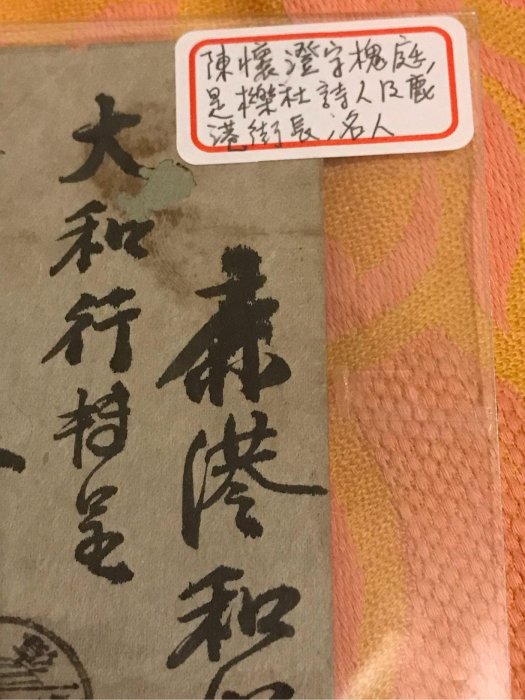 陳懷澄字槐庭,
是櫟社詩人及鹿
港街長,名人
鹿港和
大和行轉呈